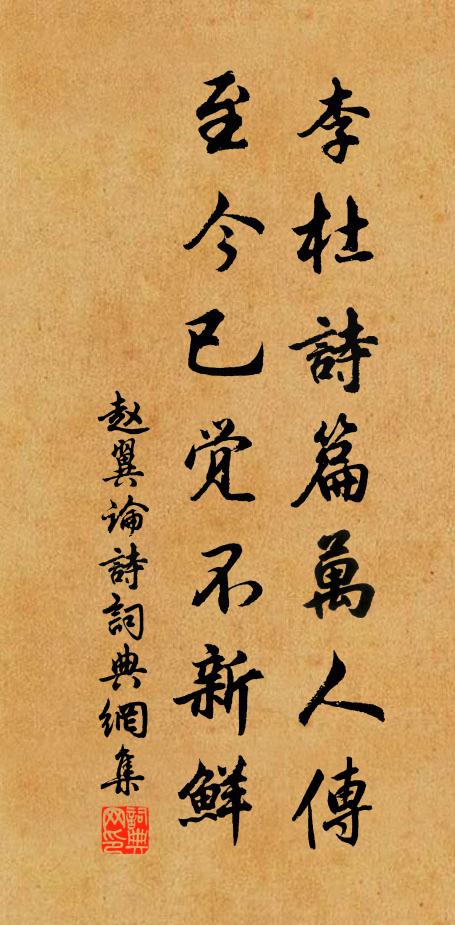 李杜詩篇萬人傳
至今已觉不新鮮
赵翼论詩詞典網集
詞典网印